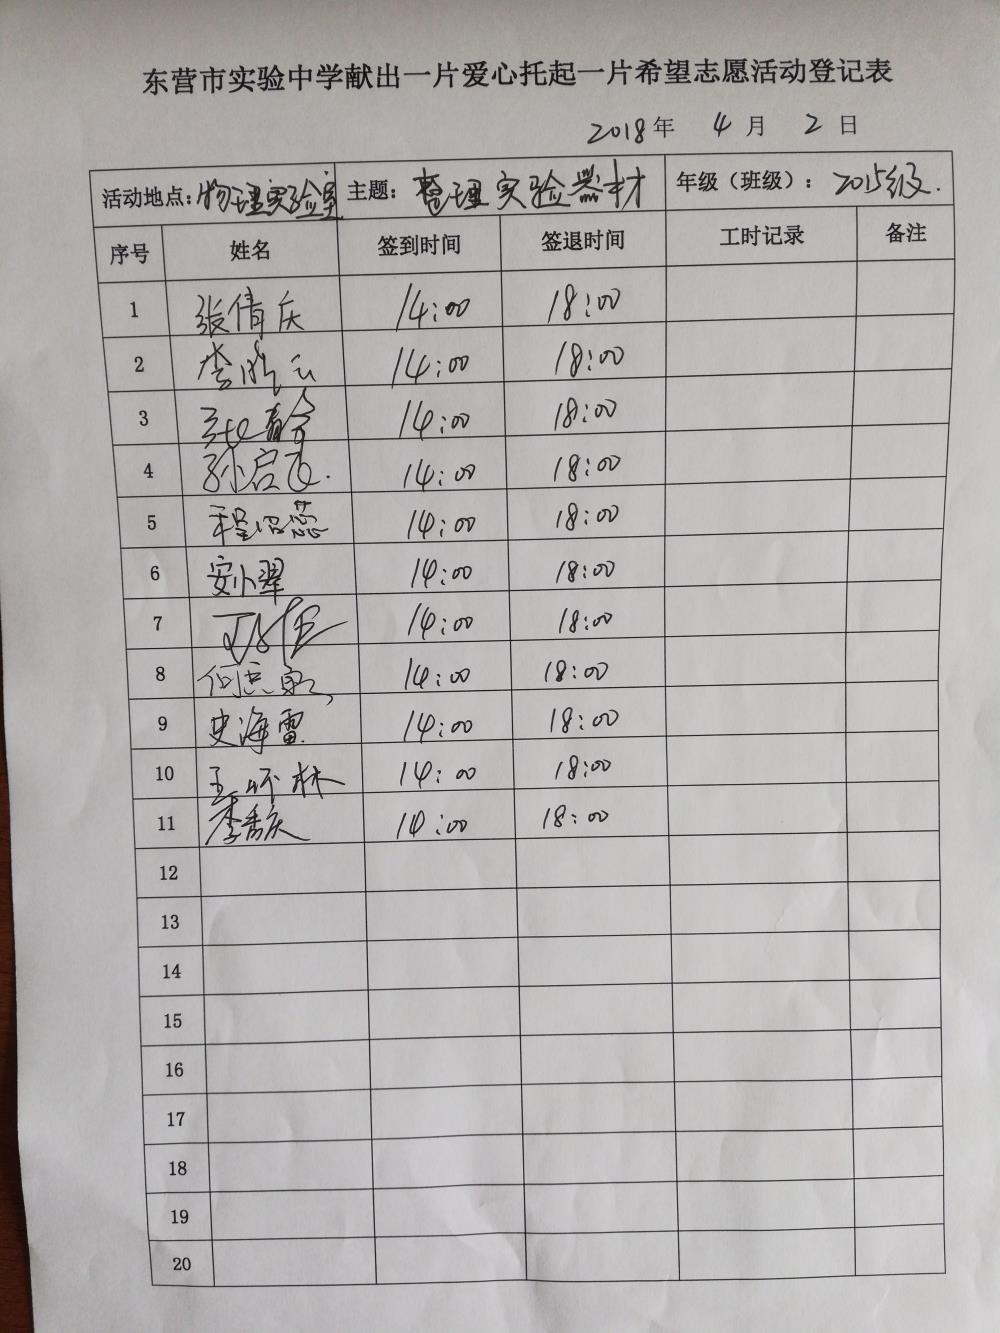 东营市实验中学献出一片爱心托起一片希望志愿活动登记表
2018年 4月 2日
活动地点：物理实验室 主题：整理实验器材 年级（班级）：2015级.
序号 姓名 签到时间 签退时间 工时记录 备注
1 张倩庆 14:00 18:00
2 李晓云 14:00 18:00
3 14:00 18:00
4 孙启飞. 14:00 18:00
5 程蕊 14:00 18:00
6 安小翠 14:00 18:00
7 14:00 18:00
8 何志 14:00 18:00
9 史海雷 14:00 18:00
10 王怀林 14:00 18:00
11 李秀庆 14:00 18:00
12
13
14
15
16
17
18
19
20